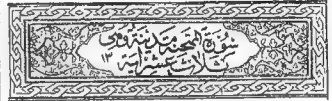 سورة الممتحنة مدنية وهي
ثلاث عشرة آية ١٣